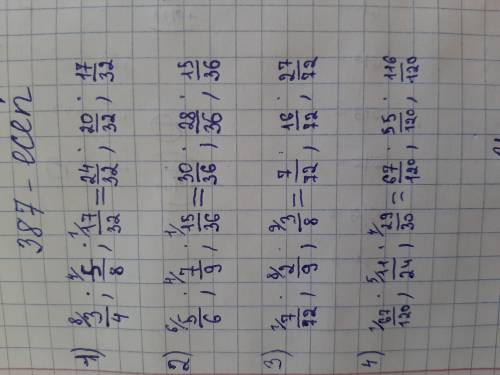 387 - есеп
1) ⁸/3/4 ; ⁴/5/8 ; ¹/17/32 = 24/32 ; 20/32 ; 17/32
2) ⁶/5/6 ; ⁴/7/9 ; ¹/15/36 = 30/36 ; 28/36 ; 15/36
3) ¹/7/72 ; ⁸/2/9 ; ⁹/3/8 = 7/72 ; 16/72 ; 27/72
4) ¹/67/120 ; ⁵/11/24 ; ⁴/29/30 = 67/120 ; 55/120 ; 116/120